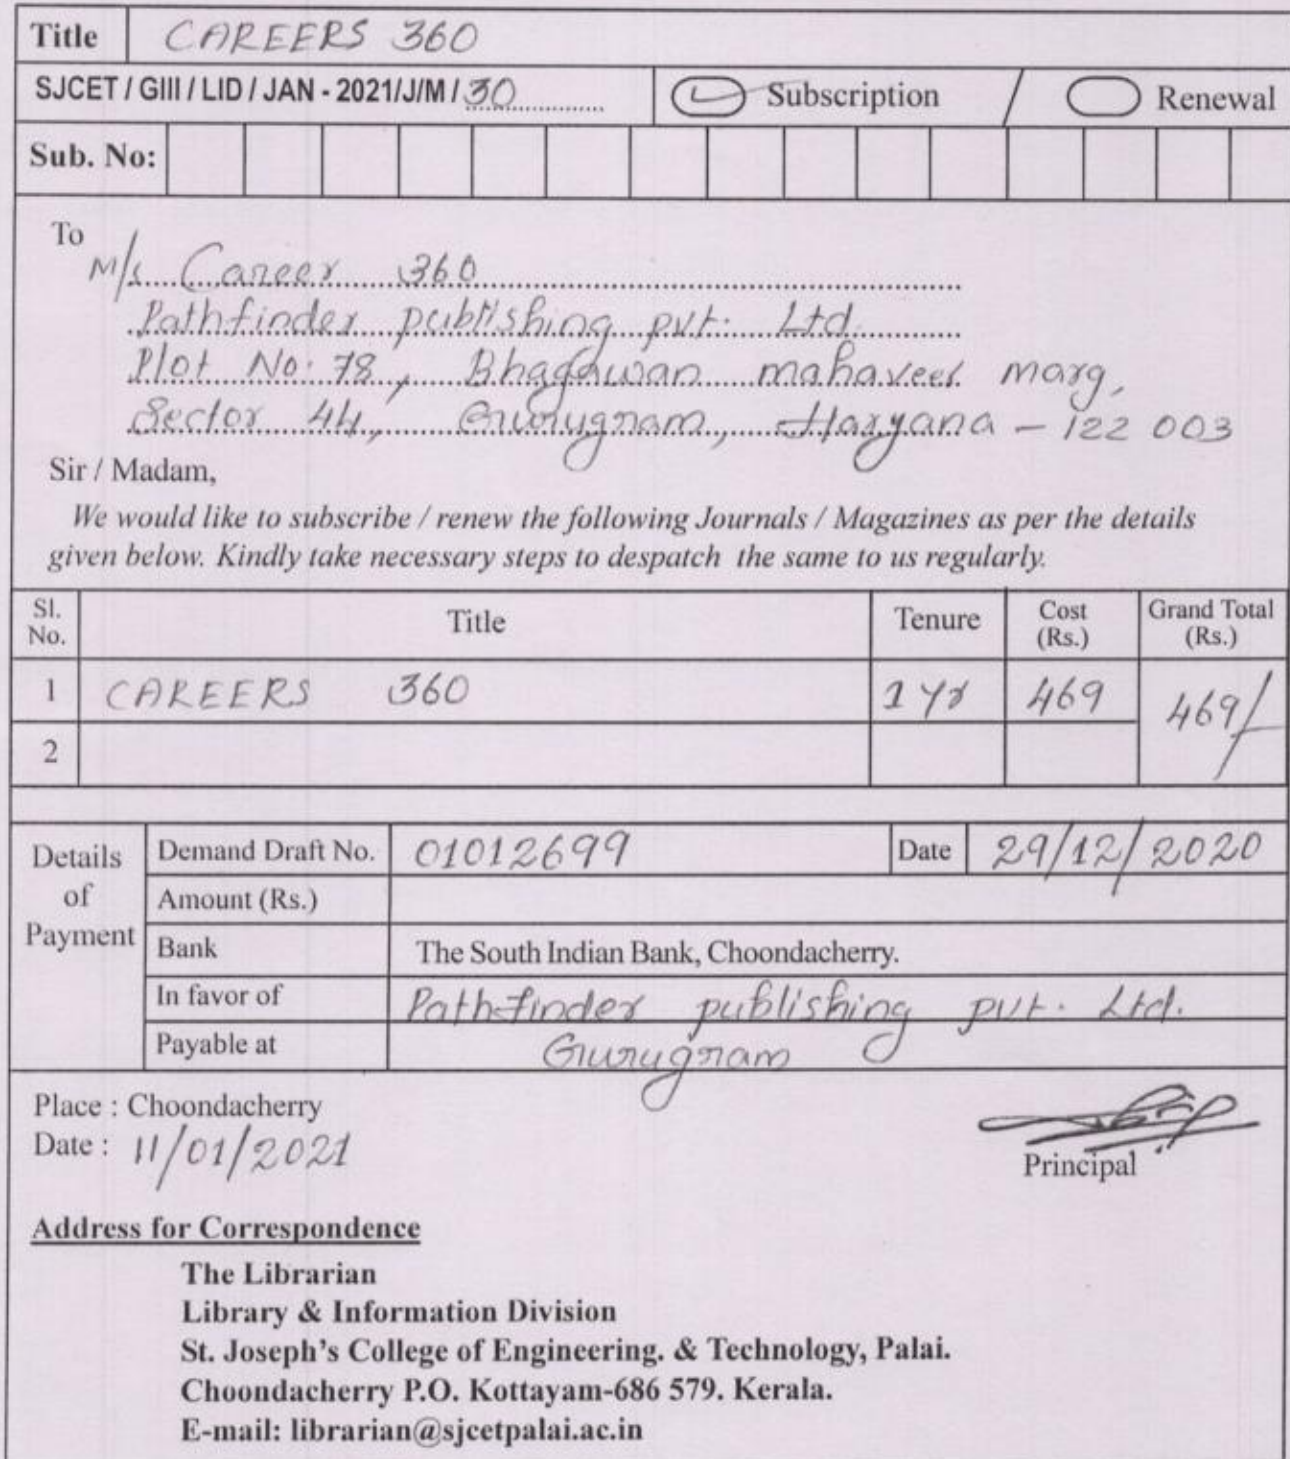 Title CAREERS 360
SJCET / GIII / LID / JAN - 2021/J/M / 30 Subscription / Renewal
Sub. No:
To
M/s Career 360
Pathfinder publishing pvt. Ltd.
Plot No: 78, Bhagawan mahaveer marg,
Sector 44, Gurugram, Haryana - 122 003
Sir / Madam,
We would like to subscribe / renew the following Journals / Magazines as per the details
given below. Kindly take necessary steps to despatch the same to us regularly.
Sl. No. Title Tenure Cost (Rs.) Grand Total (Rs.)
1 CAREERS 360 1 Yr 469 469/-
2
Details of Payment
Demand Draft No. 01012699 Date 29/12/2020
Amount (Rs.)
Bank The South Indian Bank, Choondacherry.
In favor of Pathfinder publishing pvt. Ltd.
Payable at Gurugram
Place : Choondacherry
Date : 11/01/2021
Principal
Address for Correspondence
The Librarian
Library & Information Division
St. Joseph's College of Engineering. & Technology, Palai.
Choondacherry P.O. Kottayam-686 579. Kerala.
E-mail: librarian@sjcetpalai.ac.in